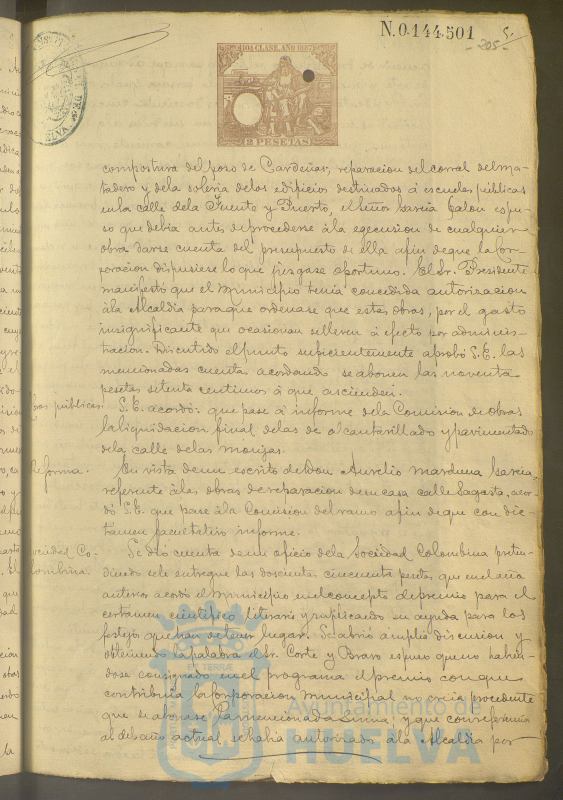 N.0.144.501
205
5.
10A CLASE. AÑO 1887
2 PESETAS
compostura del poso de Cardeñas, reparacion del corral del ma-
tadero y dela soleria delos edificios destinados á escuelas públicas
enla calle dela Fuente y Puerto, el Señor Garcia expu-
so que debia antes de procederse ála egecusion de cualquier
obra darse cuenta del presupuesto de ella afin de que la Cor-
poracion dispusiese lo que jusgase oportuno. El Sr. Presidente
manifestó que el Municipio tenia concedida autorizacion
ála Alcaldia para que ordenase que estas obras, por el gasto
insignificante que ocasionan se lleven á efecto por adminis-
tracion. Discutido el punto suficientemente aprobó S.E. las
mencionadas cuentas acordando se abonen las noventa
pesetas setenta centimos á que ascienden.
Obras públicas. S.E. acordó: que pase á informe dela Comision de obras
la liquidacion final delas de alcantarillado y pavimentado
dela calle delas monjas.
Reforma. En vista de un escrito de Don Aurelio Garcia,
referente álas obras de reparacion de su casa calle Sagasta, acor-
dó S.E. que pase ála Comision del ramo afin de que con dic-
tamen facultativo informe.
Sociedad Co- Se dió cuenta de un oficio dela Sociedad Colombina preten-
lombina. diendo se le entregue las doscientas cincuenta pesetas que en el año
anterior acordó el Municipio en el concepto de premio para el
certamen cientifico literario y suplicando su ayuda para los
festejos que han de tener lugar. Se abrió amplia discusion y
obteniendo la palabra el Sr. Corte y Bravo expuso que no habien-
dose consignado en el programa el premio con que
contribuia la Corporacion Municipal no creia procedente
que se abonase la mencionada suma, y que con referencia
al del año actual, se habia autorizado ála Alcaldia por
Ayuntamiento de
HUELVA